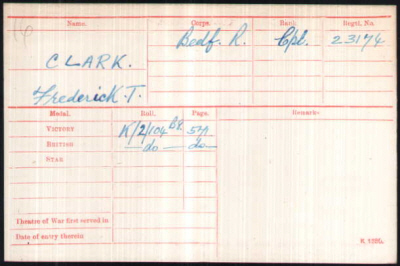 Name. Corps. Rank. Regtl. No.
CLARK. Bedf. R. Cpl. 23174
Frederick T.
Medal. Roll. Page. Remarks
VICTORY K/2/104 B2. 59A
BRITISH —do— do
STAR
Theatre of War first served in
Date of entry therein
K 1380.